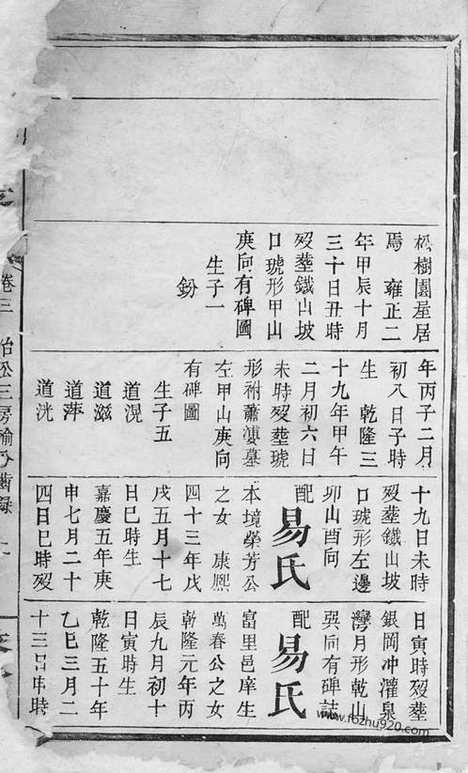 松樹園屋居
焉　雍正二
年甲辰十月
三十日丑時
歿塟鐵山坡
口琥形甲山
庚向有碑圖
生子一
鈖
年丙子二月
初八日子時
生　乾隆三
十九年甲午
二月初六日
未時歿塟琥
形祔蕭妻墓
左甲山庚向
有碑圖
生子五
道混
道滋
道萍
道洸
十九日未時
歿塟鐵山坡
口琥形左邊
卯山酉向
配易氏
本境榮芳公
之女　康熙
四十三年戊
戌五月十七
日巳時生
嘉慶五年庚
申七月二十
四日巳時歿
日寅時歿塟
銀岡冲灌泉
灣月形乾山
巽向有碑誌
配易氏
富里邑庠生
萬春公之女
乾隆元年丙
辰九月初十
日寅時生
乾隆五十年
乙巳三月二
十三日申時
卷三
三房
齒錄
www.fozhu920.com